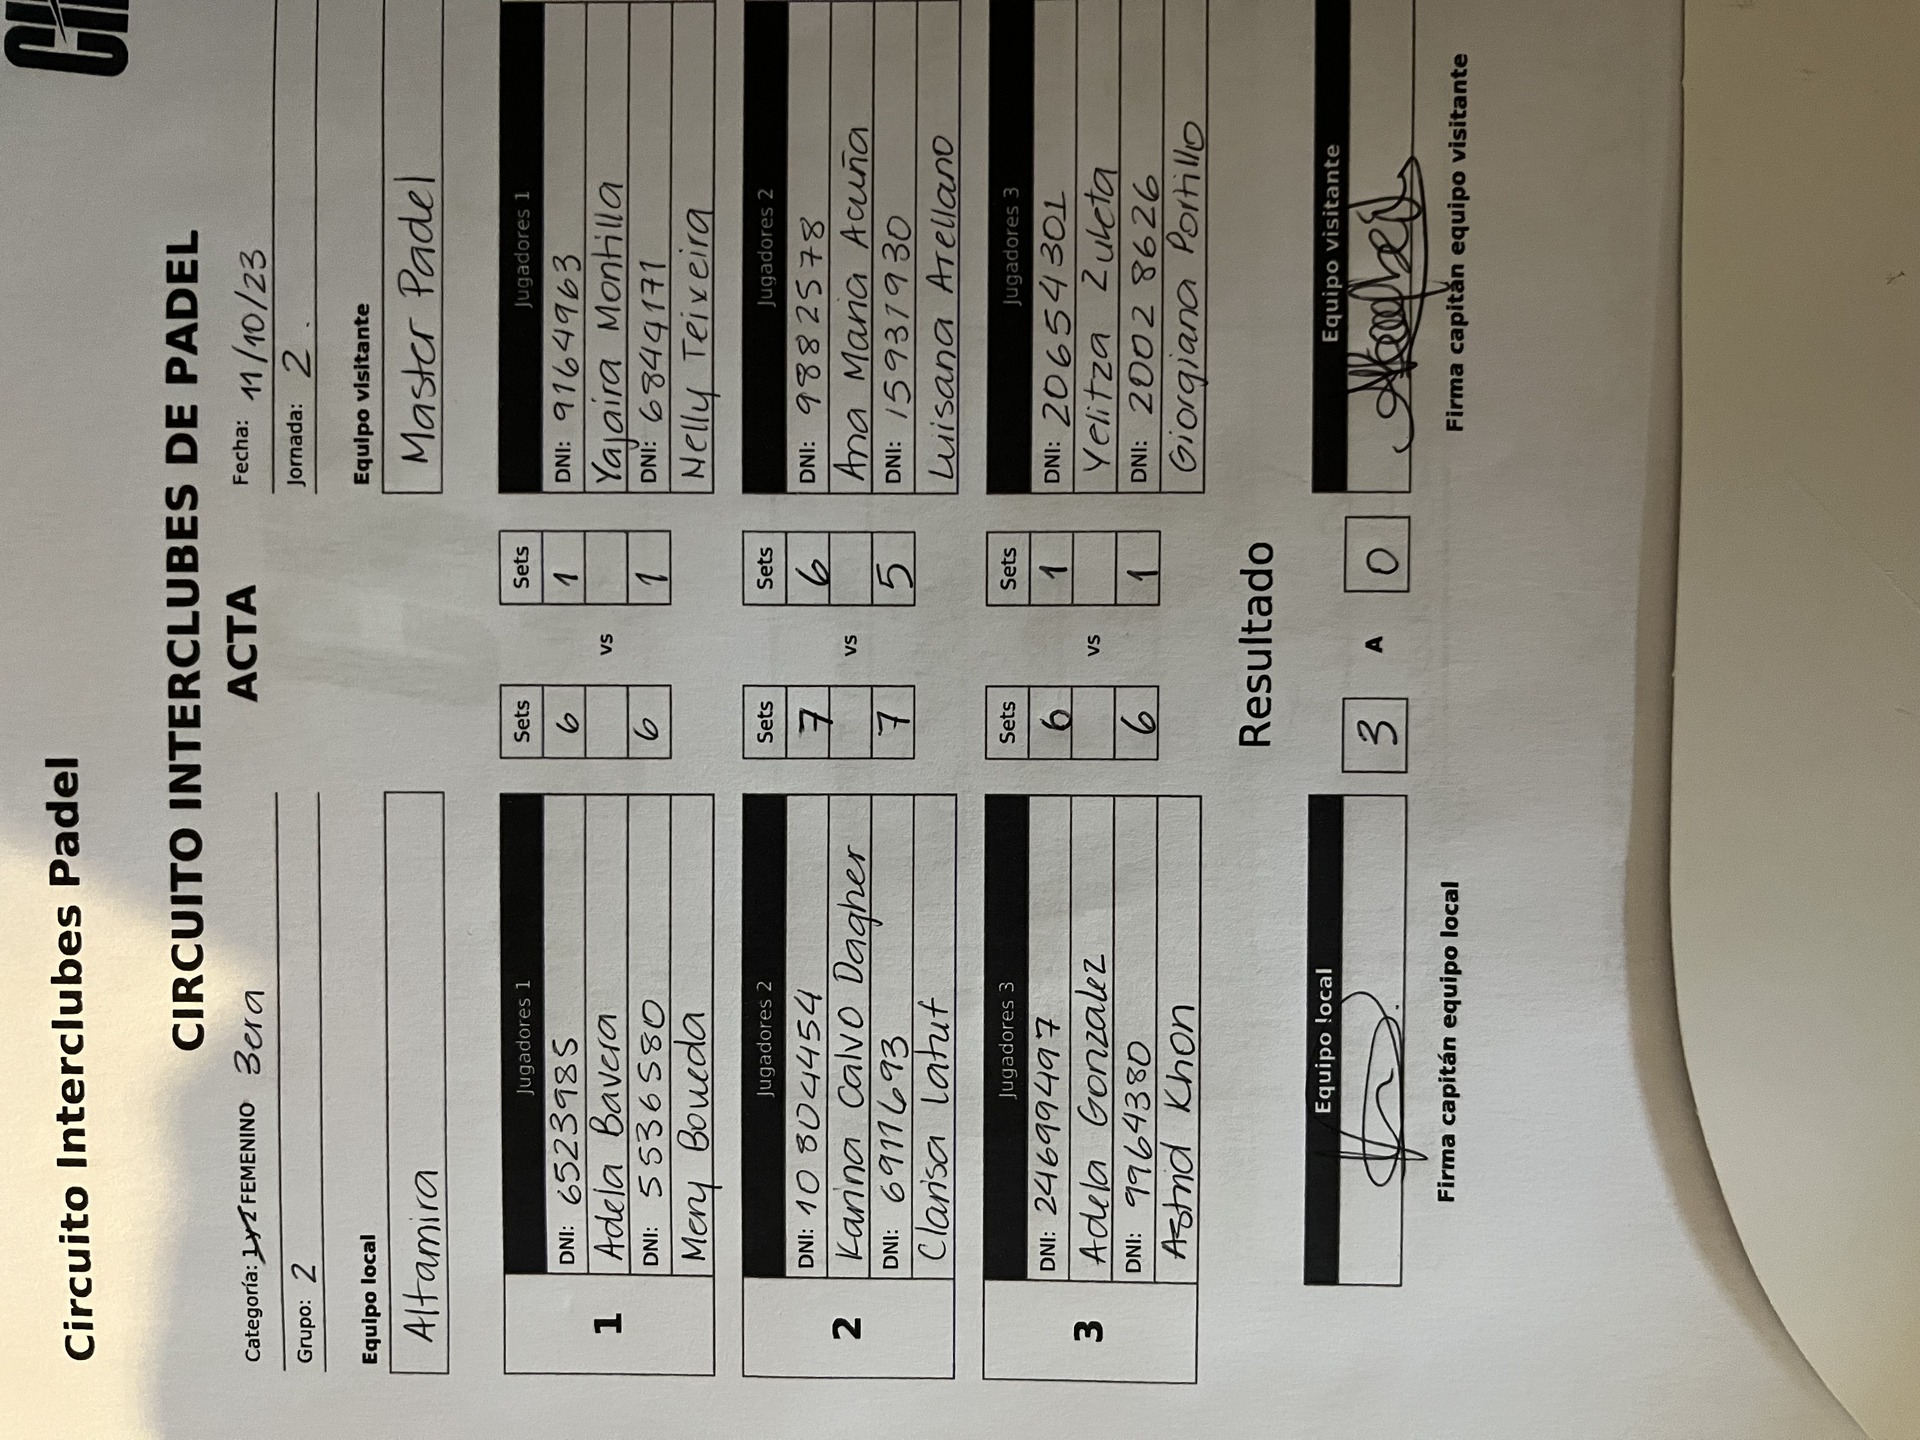 Circuito Interclubes Padel
CIRCUITO INTERCLUBES DE PADEL
ACTA
Categoría: 1y2 FEMENINO 3era
Fecha: 11/10/23
Grupo: 2
Jornada: 2.
Equipo local
Equipo visitante
Altamira
Master Padel
1
Jugadores 1
Sets
Sets
Jugadores 1
DNI: 6523985
6
1
DNI: 9164963
Adela Bavera
vs
Yajaira Montilla
DNI: 5536580
6
1
DNI: 6844171
Mery Boveda
Nelly Teixeira
2
Jugadores 2
Sets
Sets
Jugadores 2
DNI: 10804454
7
6
DNI: 9882578
Karina Calvo Dagher
vs
Ana Maria Acuña
DNI: 6911693
7
5
DNI: 15931930
Clarisa Latuf
Luisana Arellano
3
Jugadores 3
Sets
Sets
Jugadores 3
DNI: 24699497
6
1
DNI: 20654301
Adela Gonzalez
vs
Yelitza Zuleta
DNI: 9964380
6
1
DNI: 20028626
Astrid Khon
Giorgiana Portillo
Resultado
Equipo local
3 A 0
Equipo visitante
Firma capitán equipo local
Firma capitán equipo visitante